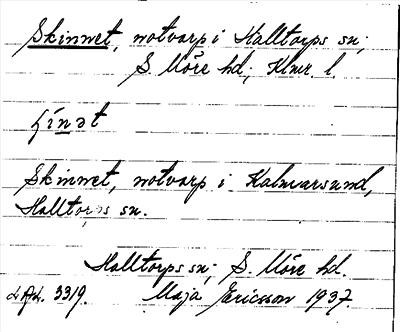 Skinnet, notvarp i Halltorps sn;
S. Möre hd; Klmr l.
ʃínət
Skinnet, notvarp i Kalmarsund,
Halltorps sn.
Halltorps sn; S. Möre hd.
LAL. 3319. Maja Ericsson 1937